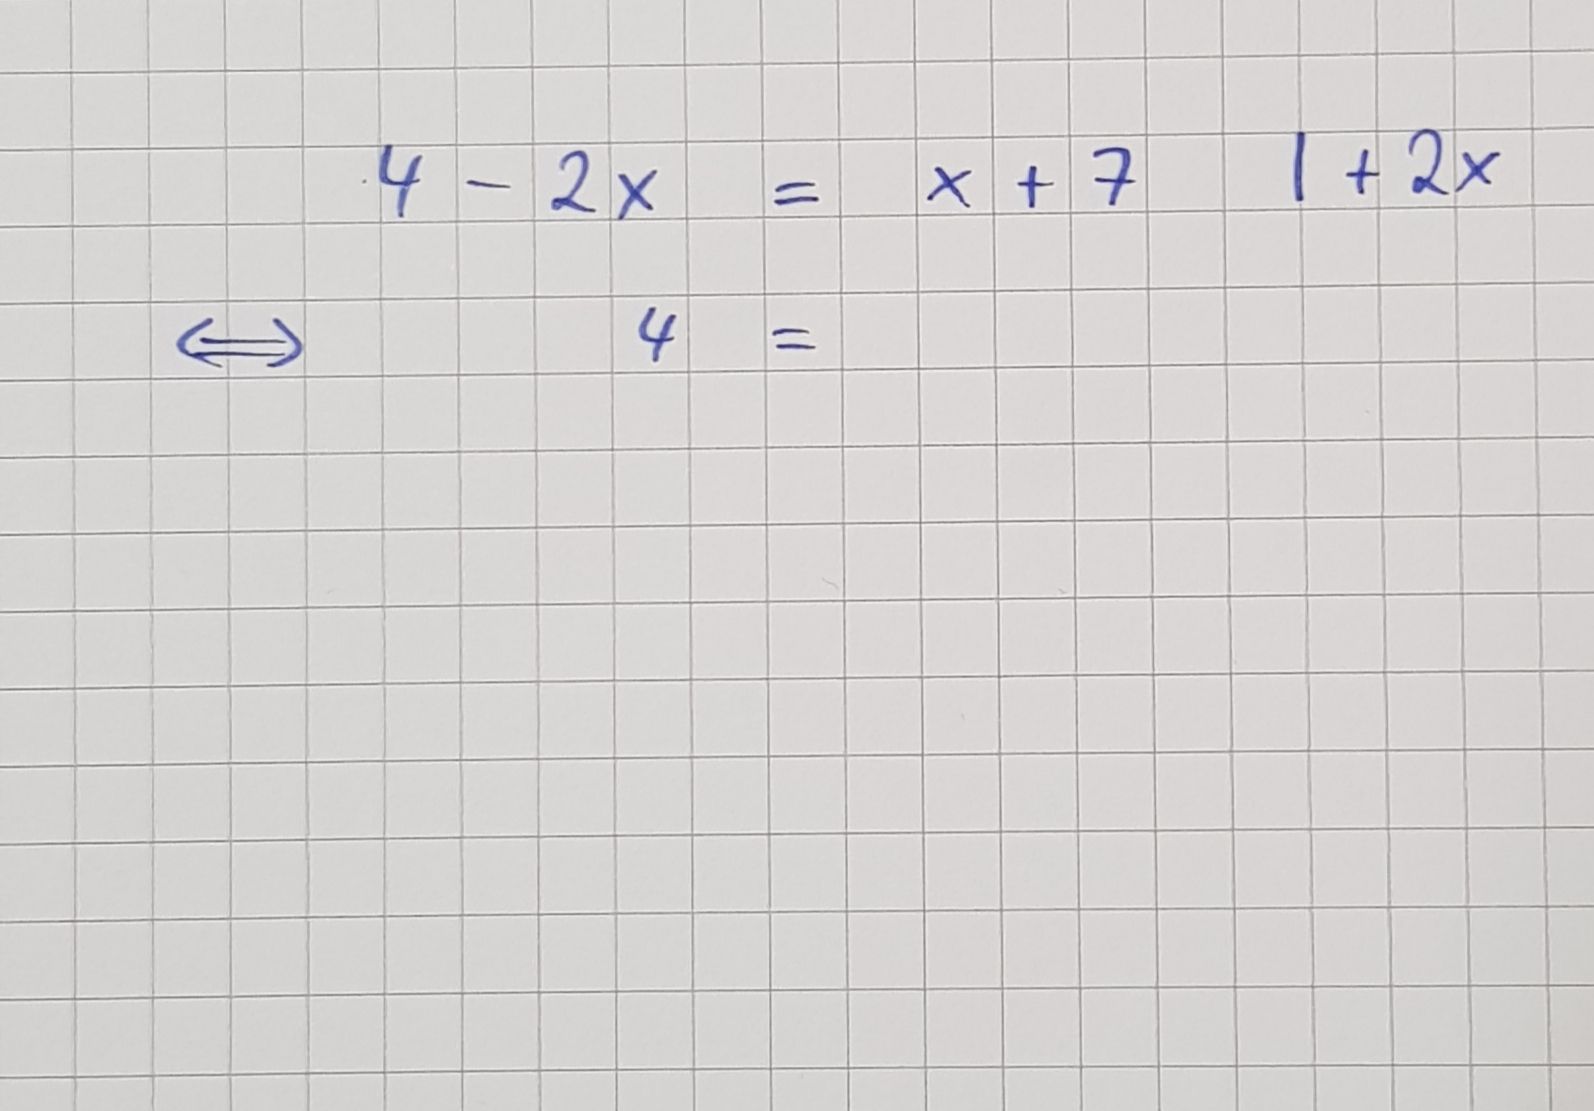 4 - 2x = x + 7 | + 2x
⟺ 4 =